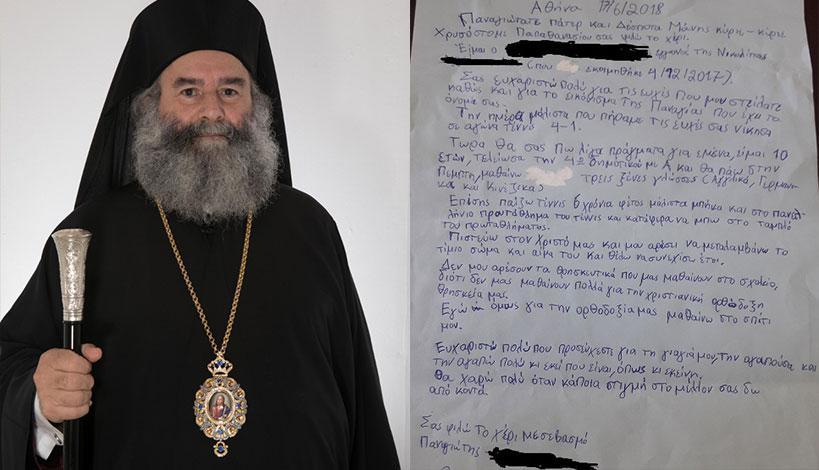 Αθήνα 17/6/2018
Παναγιώτατε πάτερ και Δέσποτα Μάνης κύριε - κύριε
Χρυσόστομε Παπαθανασίου σας φιλώ το χέρι.
Είμαι ο εγγονός της
(που εκοιμήθηκε 4/12/2017).
Σας ευχαριστώ πολύ για τις ευχές που μου στείλατε
καθώς και για το εικόνισμα της Παναγίας που έχει το
όνομα σας.
Την ημέρα μάλιστα που πήραμε τις ευχές σας νίκησα
σε αγώνα τέννις 4-1.
Τώρα θα σας πω λίγα πράγματα για εμένα, είμαι 10
ετών, τελείωσα την 4η δημοτικού με Α και θα πάω στην
Πέμπτη, μαθαίνω τρεις ξένες γλώσσες (Αγγλικά, Γερμανι-
κά και Κινέζικα)
Επίσης παίζω τέννις 6 χρόνια φέτος μάλιστα μπήκα και στο πανελ-
λήνιο πρωτάθλημα του τέννις και κατάφερα να μπω στο ταμπλό
του πρωταθλήματος.
Πιστεύω στον Χριστό μας και μου αρέσει να μεταλαμβάνω το
τίμιο σώμα και αίμα του και θέλω να συνεχίσω έτσι.
Δεν μου αρέσουν τα θρησκευτικά που μας μαθαίνουν στο σχολείο,
διότι δεν μας μαθαίνουν πολλά για την χριστιανική ορθόδοξη
θρησκεία μας.
Εγώ όμως για την ορθοδοξία μας μαθαίνω στο σπίτι
μου.
Ευχαριστώ πολύ που προσεύχεστε για τη γιαγιά μου, την αγαπούσα και
την αγαπώ πολύ κι εκεί που είναι, όπως κι εκείνη.
Θα χαρώ πολύ όταν κάποια στιγμή στο μέλλον σας δω
από κοντά.
Σας φιλώ το χέρι με σεβασμό
Παναγιώτης